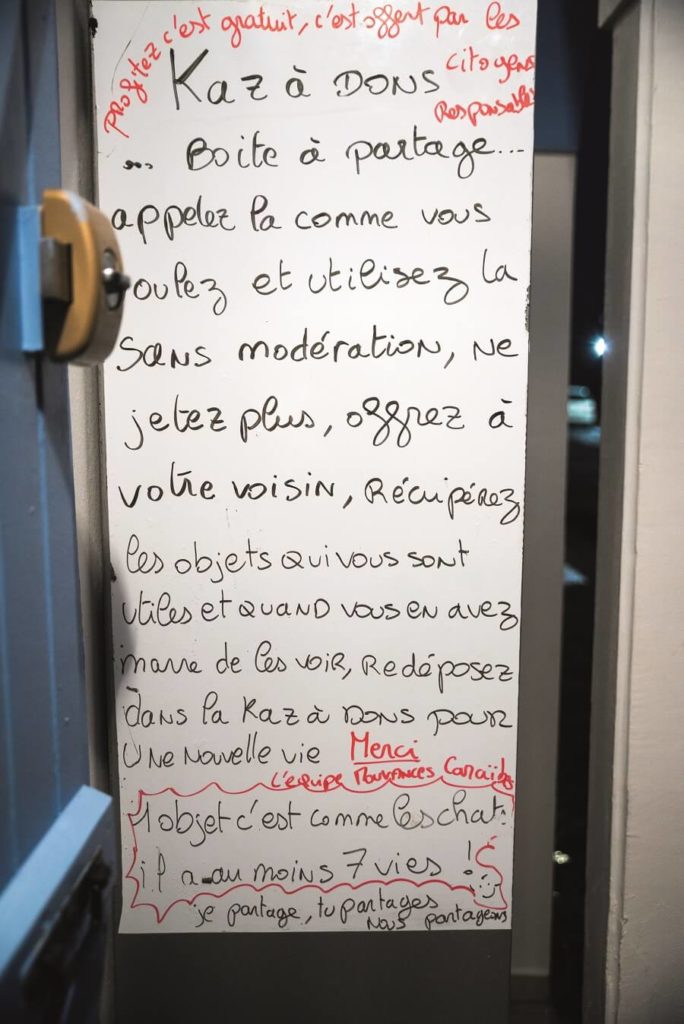 Profitez c'est gratuit, c'est offert par les
citoyens
Responsables
Kaz à DONS
... Boite à partage...
appelez la comme vous
oulez et utilisez la
sans modération, ne
jetez plus, offrez à
votre voisin, Récupérez
les objets qui vous sont
utiles et quand vous en avez
marre de les voir, Redéposez
dans la Kaz à Dons pour
une nouvelle vie Merci
L'équipe Mouvances Caraïbes
1 objet c'est comme les chats
il a au moins 7 vies !
je partage, tu partages
nous partageons